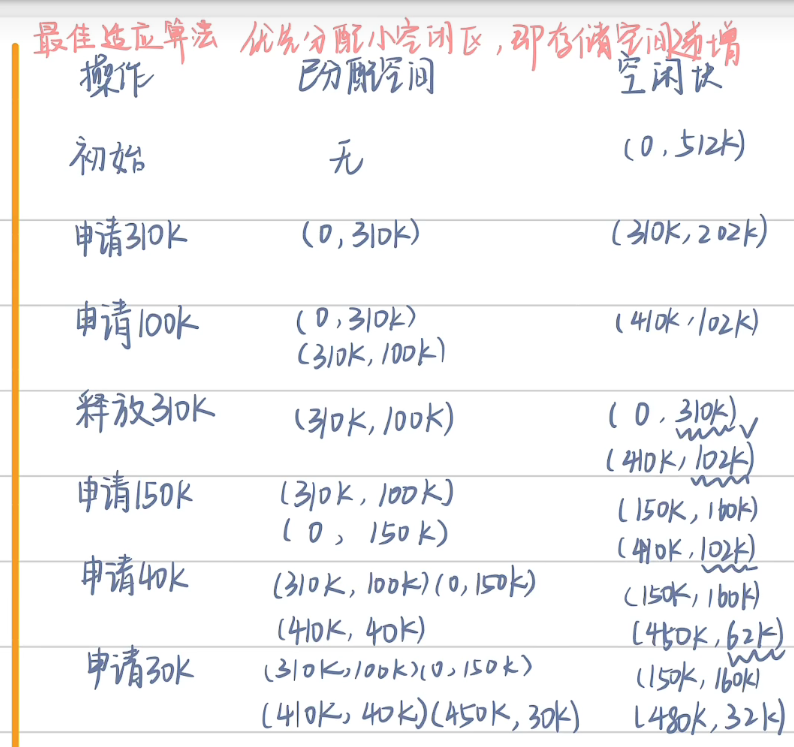 最佳适应算法 优先分配小空闲区,即存储空间递增
操作 已分配空间 空闲块
初始 无 (0,512K)
申请310K (0,310K) (310K,202K)
申请100K (0,310K) (410K,102K)
(310K,100K)
释放310K (310K,100K) (0,310K)
(410K,102K)
申请150K (310K,100K) (150K,160K)
(0,150K) (410K,102K)
申请40K (310K,100K)(0,150K) (150K,160K)
(410K,40K) (450K,62K)
申请30K (310K,100K)(0,150K) (150K,160K)
(410K,40K)(450K,30K) (480K,32K)